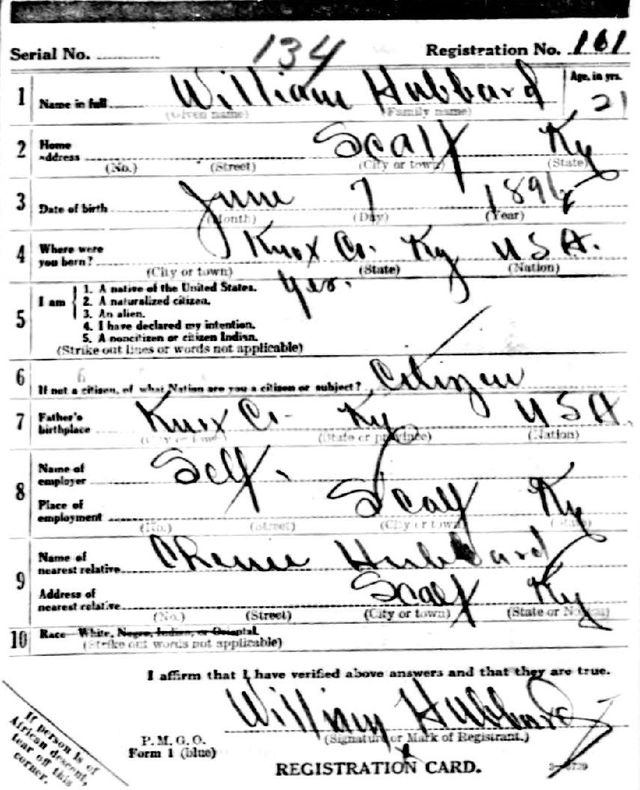 Serial No. 134 Registration No. 161
1 Name in full William Hubbard Age, in yrs. 21
(Given name) (Family name)
2 Home address Scalf Ky
(No.) (Street) (City or town) (State)
3 Date of birth June 7 1896
(Month) (Day) (Year)
4 Where were you born? Knox Co. Ky USA.
(City or town) (State) (Nation)
5 I am 1. A native of the United States. yes.
2. A naturalized citizen.
3. An alien.
4. I have declared my intention.
5. A noncitizen or citizen Indian.
(Strike out lines or words not applicable)
6 If not a citizen, of what Nation are you a citizen or subject? Citizen
7 Father's birthplace Knox Co. Ky USA
(City or town) (State or province) (Nation)
8 Name of employer Self.
Place of employment Scalf Ky
(No.) (Street) (City or town) (State)
9 Name of nearest relative Hubbard
Address of nearest relative Scalf Ky
(No.) (Street) (City or town) (State or Nation)
10 Race—White, Negro, Indian, or Oriental.
(Strike out words not applicable)
I affirm that I have verified above answers and that they are true.
William Hubbard
(Signature or Mark of Registrant.)
P. M. G. O.
Form 1 (blue)
REGISTRATION CARD.
If person is of
African descent,
tear off this
corner.